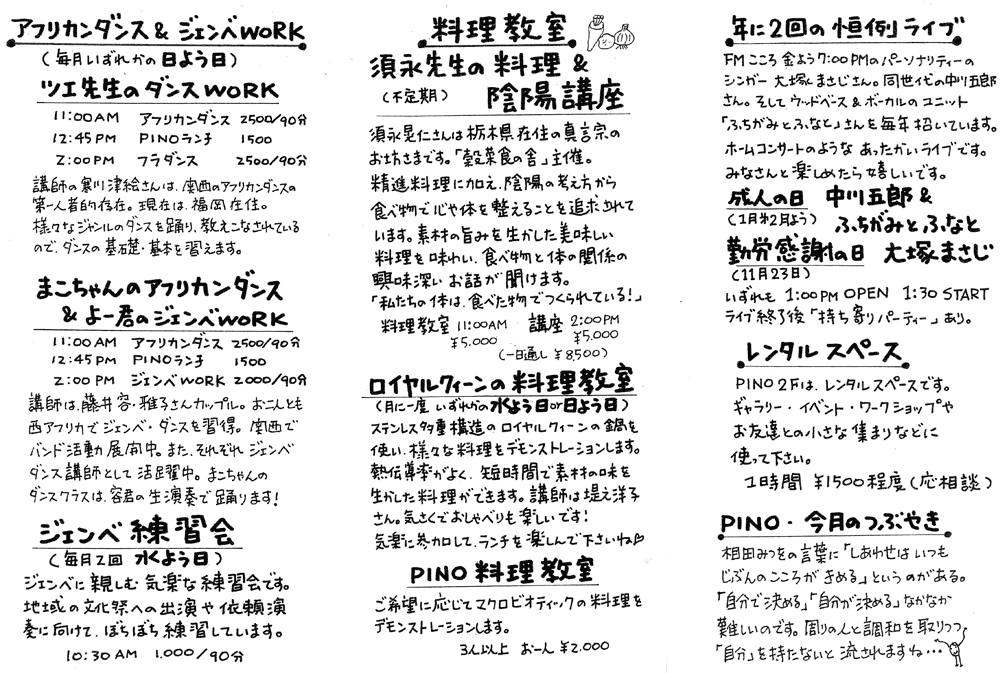 アフリカンダンス & ジェンベWORK
(毎月いずれかの日よう日)
ツエ先生のダンスWORK
11:00AM アフリカンダンス 2500/90分
12:45PM PINOランチ 1500
2:00PM フラダンス 2500/90分
講師の寒川津絵さんは、関西のアフリカンダンスの
第一人者的存在。現在は、福岡在住。
様々なジャンルのダンスを踊り、教えこなされている
ので、ダンスの基礎・基本を習えます。
まこちゃんのアフリカンダンス
& よー君のジェンベWORK
11:00AM アフリカンダンス 2500/90分
12:45PM PINOランチ 1500
2:00PM ジェンベWORK 2000/90分
講師は、藤井容・雅子さんカップル。お二人とも
西アフリカでジェンベ・ダンスを習得。関西で
バンド活動展開中。また、それぞれジェンベ
ダンス講師として活躍中。まこちゃんの
ダンスクラスは、容君の生演奏で踊ります!
ジェンベ 練習会
(毎月2回 水よう日)
ジェンベに親しむ気楽な練習会です。
地域の文化祭への出演や依頼演
奏に向けて、ぼちぼち練習しています。
10:30AM 1.000/90分
料理教室
須永先生の料理 &
(不定期) 陰陽講座
須永晃仁さんは栃木県在住の真言宗の
お坊さまです。「穀菜食の舎」主催。
精進料理に加え、陰陽の考え方から
食べ物で心や体を整えることを追求されて
います。素材の旨みを生かした美味しい
料理を味わい、食べ物と体の関係の
興味深いお話が聞けます。
「私たちの体は、食べた物でつくられている!」
料理教室 11:00AM 講座 2:00PM
¥5.000 ¥5.000
(一日通し ¥8500)
ロイヤルクィーンの料理教室
(月に一度 いずれかの水よう日or日よう日)
ステンレス多重構造のロイヤルクィーンの鍋を
使い、様々な料理をデモンストレーションします。
熱伝導率がよく、短時間で素材の味を
生かした料理ができます。講師は堤え洋子
さん。気さくでおしゃべりも楽しいです!
気楽に参加して、ランチを楽しんで下さいね♡
PINO 料理教室
ご希望に応じてマクロビオティックの料理を
デモンストレーションします。
3人以上 お一人 ¥2.000
年に2回の恒例ライブ
FMこころ金よう7:00PMのパーソナリティーの
シンガー大塚まさじさん。同世代の中川五郎
さん。そしてウッドベース&ボーカルのユニット
「ふちがみとふなと」さんを毎年招いています。
ホームコンサートのようなあったかいライブです。
みなさんと楽しめたら嬉しいです。
成人の日 中川五郎 &
(1月第2月よう) ふちがみとふなと
勤労感謝の日 大塚まさじ
(11月23日)
いずれも 1:00PM OPEN 1:30 START
ライブ終了後「持ち寄りパーティー」あり。
レンタル スペース
PINO 2Fは、レンタルスペースです。
ギャラリー・イベント・ワークショップや
お友達との小さな集まりなどに
使って下さい。
1時間 ¥1500程度(応相談)
PINO・今月のつぶやき
相田みつをの言葉に「しあわせはいつも
じぶんのこころがきめる」というのがある。
「自分で決める」「自分が決める」なかなか
難しいのです。周りの人と調和を取りつつ
「自分」を持たないと流されますね…